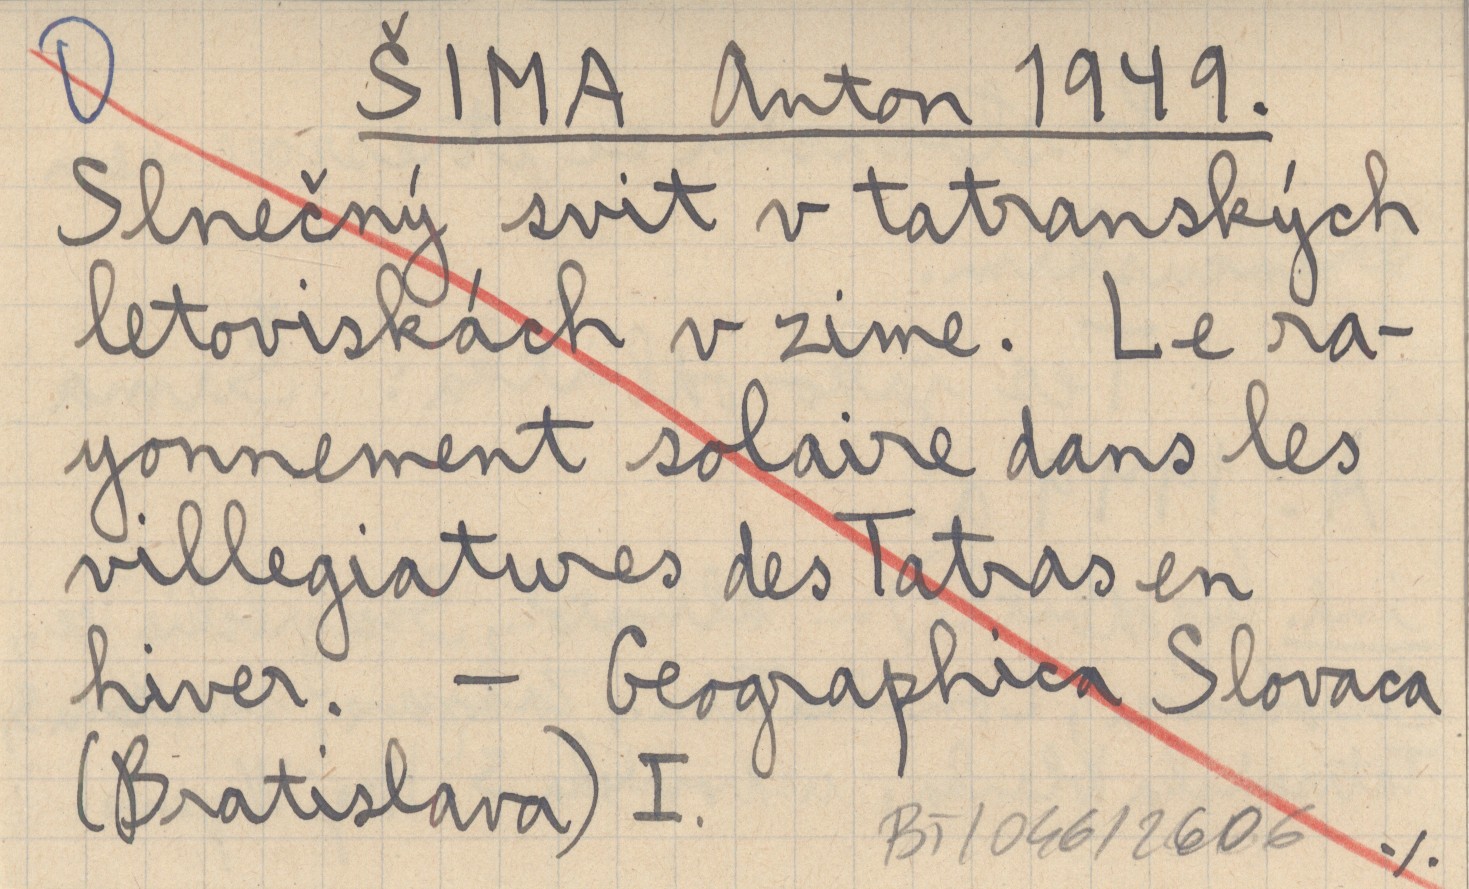 ŠIMA Anton 1949.
Slnečný svit v tatranských
letoviskách v zime. Le ra-
yonnement solaire dans les
villegiatures des Tatras en
hiver. – Geographica Slovaca
(Bratislava) I.
BT/046/2606
./.